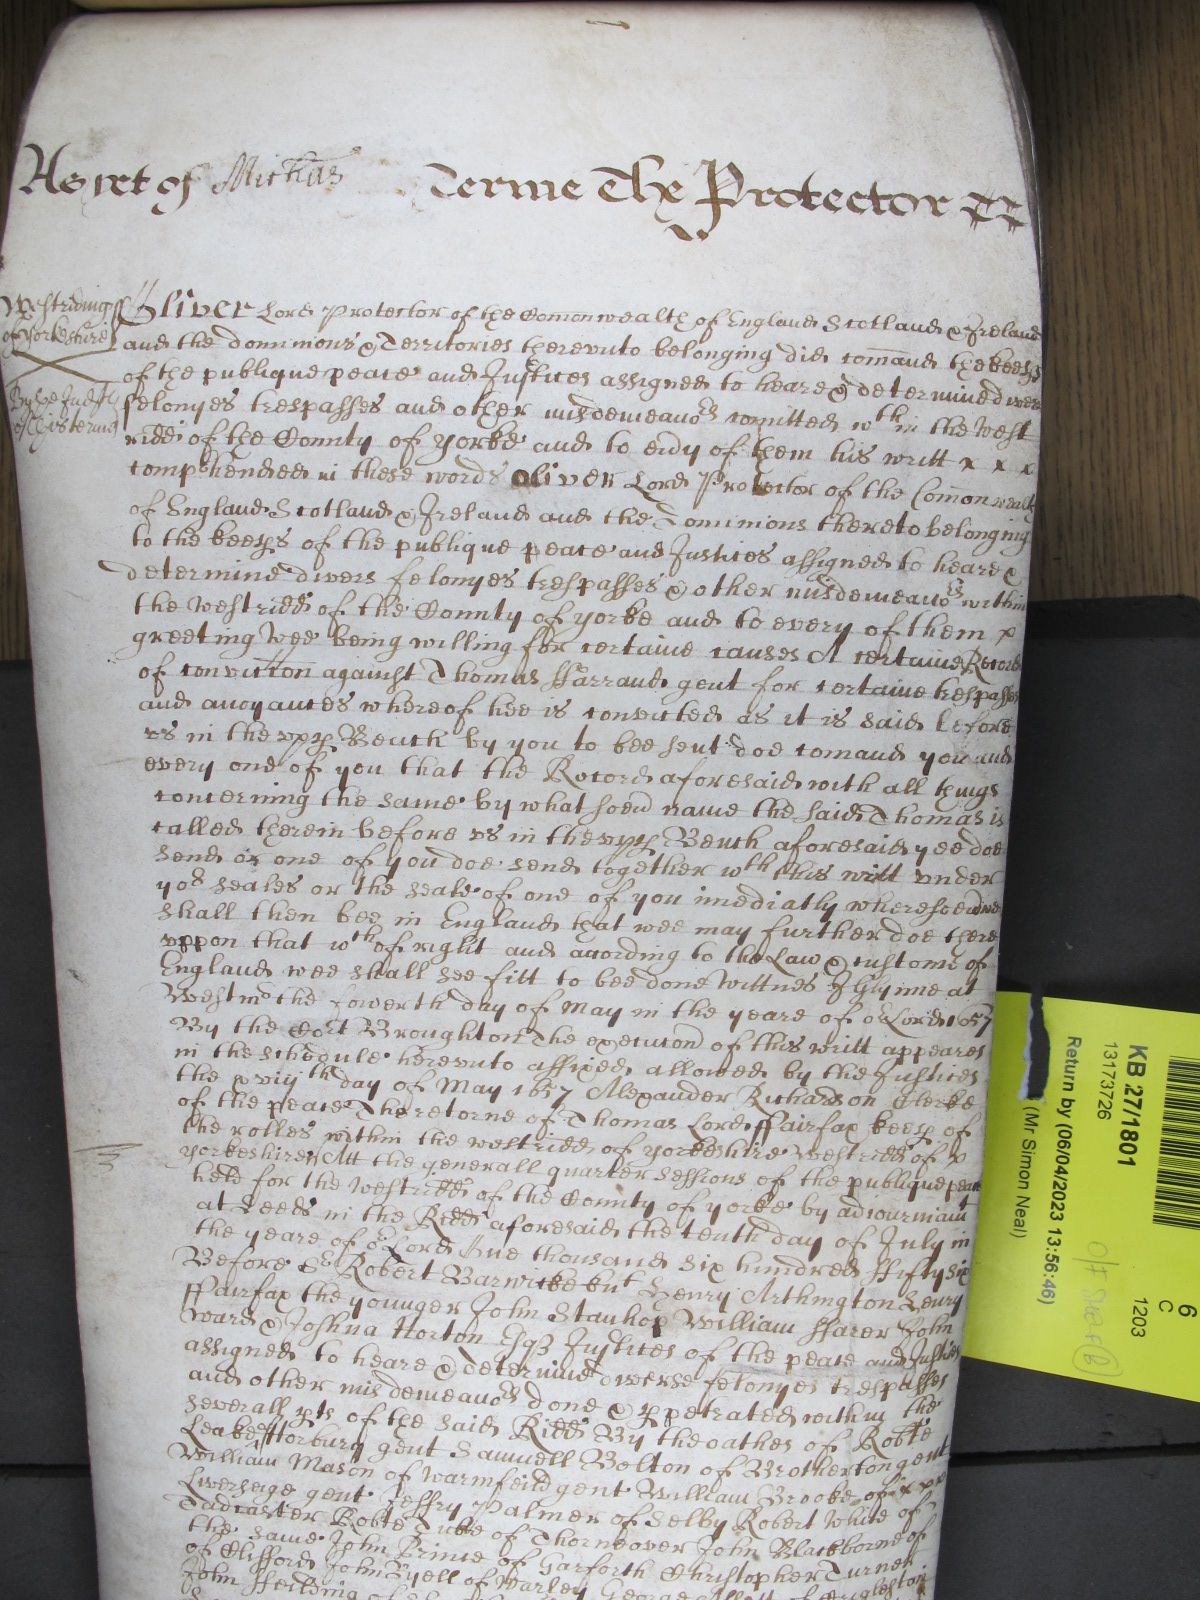 As yet of Mich'us Terme The Protector
Westriding
of Yorkeshire
Oliver Lord Protector of the Comonwealth of England Scotland & Ireland
and the dominions & Territories therevnto belonging did comaund the keeps
of the publique peace and Justices assigned to heare & determine divers
felonyes trespasses and other misdemeanors comitted wth in the West
ridd of the County of Yorke and to evy of them his writt x x x
comphended in these words Oliver Lord Protector of the Comonwealth
of England Scotland & Ireland and the Dominions thereto belonging
to the keeps of the publique peace and Justices assigned to heare &
determine divers felonyes trespasses & other misdemeanors within
the Westridd of the County of Yorke and to every of them x
greeting Wee being willing for certaine causes A certaine Record
of conviction against Thomas Ffarrand gent for certaine trespasses
and anoyances whereof hee is convicted as it is said before
vs in the vpp Bench by you to bee sent doe comaund you and
every one of you that the Record aforesaid with all things
concerning the same by what soev name the said Thomas is
called therein before vs in the vpp Bench aforesaid yee doe
send or one of you doe send together wth this writt vnder
yor seales or the seale of one of you imediatly wheresoev wee
shall then bee in England that wee may further doe there
vppon that wth of right and according to the Law & custome of
England wee shall see fitt to bee done Wittnes J Glynne at
Westmr the fowerth day of May in the yeare of or Lord 1657
By the Cort Broughton The execucon of this writt appeares
in the schedule herevnto affixed allowed by the Justices
the xviijth day of May 1657 Alexander Richardson Clerke
of the peace The retorne of Thomas Lord Ffairfax keep of
the rolles within the westridd of yorkeshire Westridd of x
yorkeshire Att the generall quarter sessions of the publique peace
held for the Westridd of the County of Yorke by adiournamt
at Leeds in the Ridd aforesaid the tenth day of July in
the yeare of or Lord One thousand six hundred Fifty six
Before Sr Robert Barwicke knt Henry Arthington Henry
Ffairfax the younger John Stanhop William Ffarer John
Ward & Joshua Horton Esqs Justices of the peace and Justices
assigned to heare & determine diverse felonyes trespasses
and other misdemeanors done & ppetrated within the
severall pts of the said Ridd By the oathes of Robte
Leake Horbury gent Samuell Belton of Brotherton gent
William Mason of Warmfeild gent William Brooke of x x x
Liversege gent Jeffry Palmer of Selby Robert White of
Tadcaster Robte Tuke of Thorneover John Blackborne of
the same John Prince of Garforth Christopher Turner
of Clifford John Lyell of Warley George Allott of
John Feilding of
KB 27/1801
13173726
Return by (06/04/2023 13:56:46)
(Mr Simon Neal)
6
C
1203